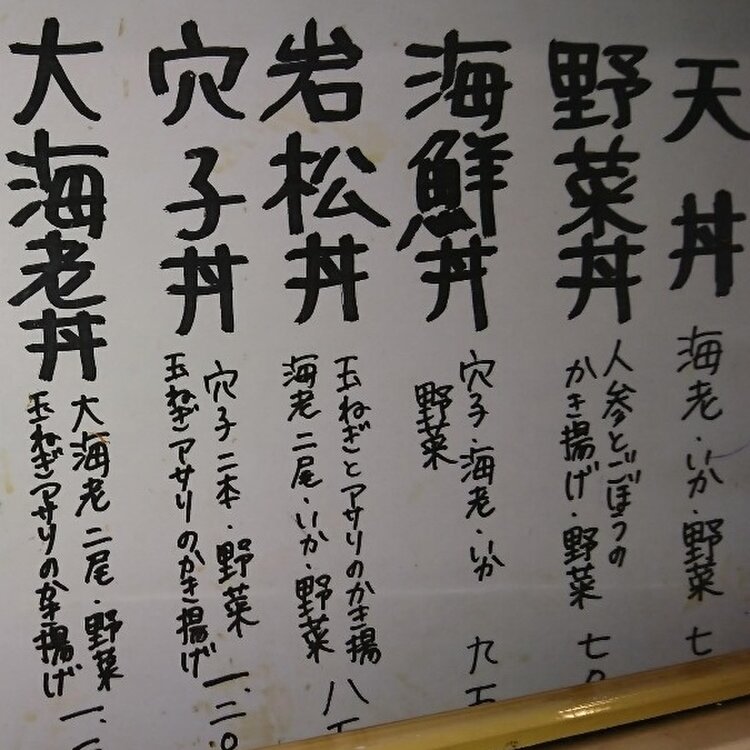 天丼
海老・いか・野菜
七
野菜丼
人参とごぼうの
かき揚げ・野菜
七
海鮮丼
穴子・海老・いか
野菜
九五
岩松丼
玉ねぎとアサリのかき揚
海老二尾・いか・野菜
八五
穴子丼
穴子二本・野菜
玉ねぎアサリのかき揚げ
一、二〇
大海老丼
大海老二尾・野菜
玉ねぎアサリのかき揚げ
一、